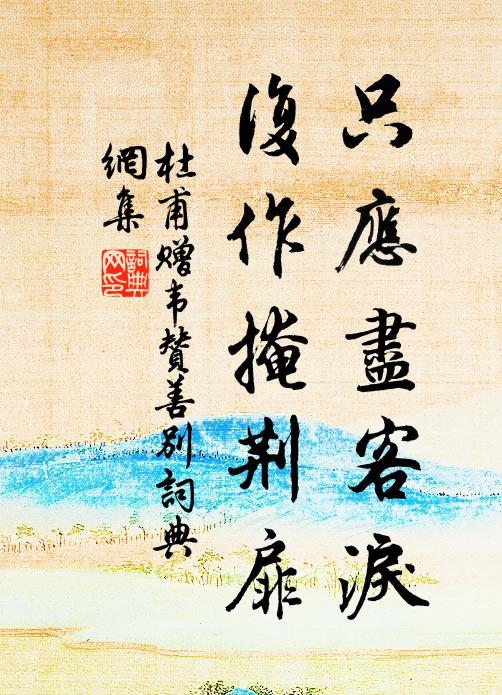 只應盡客淚
復作掩荆扉
杜甫贈韦贊善别詞典
網集
詞典
网印